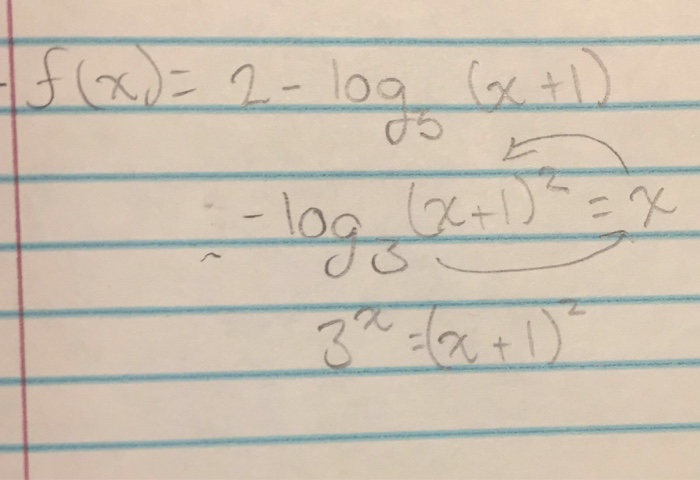 f(x) = 2 - log₃ (x+1)
-log₃ (x+1)² = x
3ˣ = (x+1)²